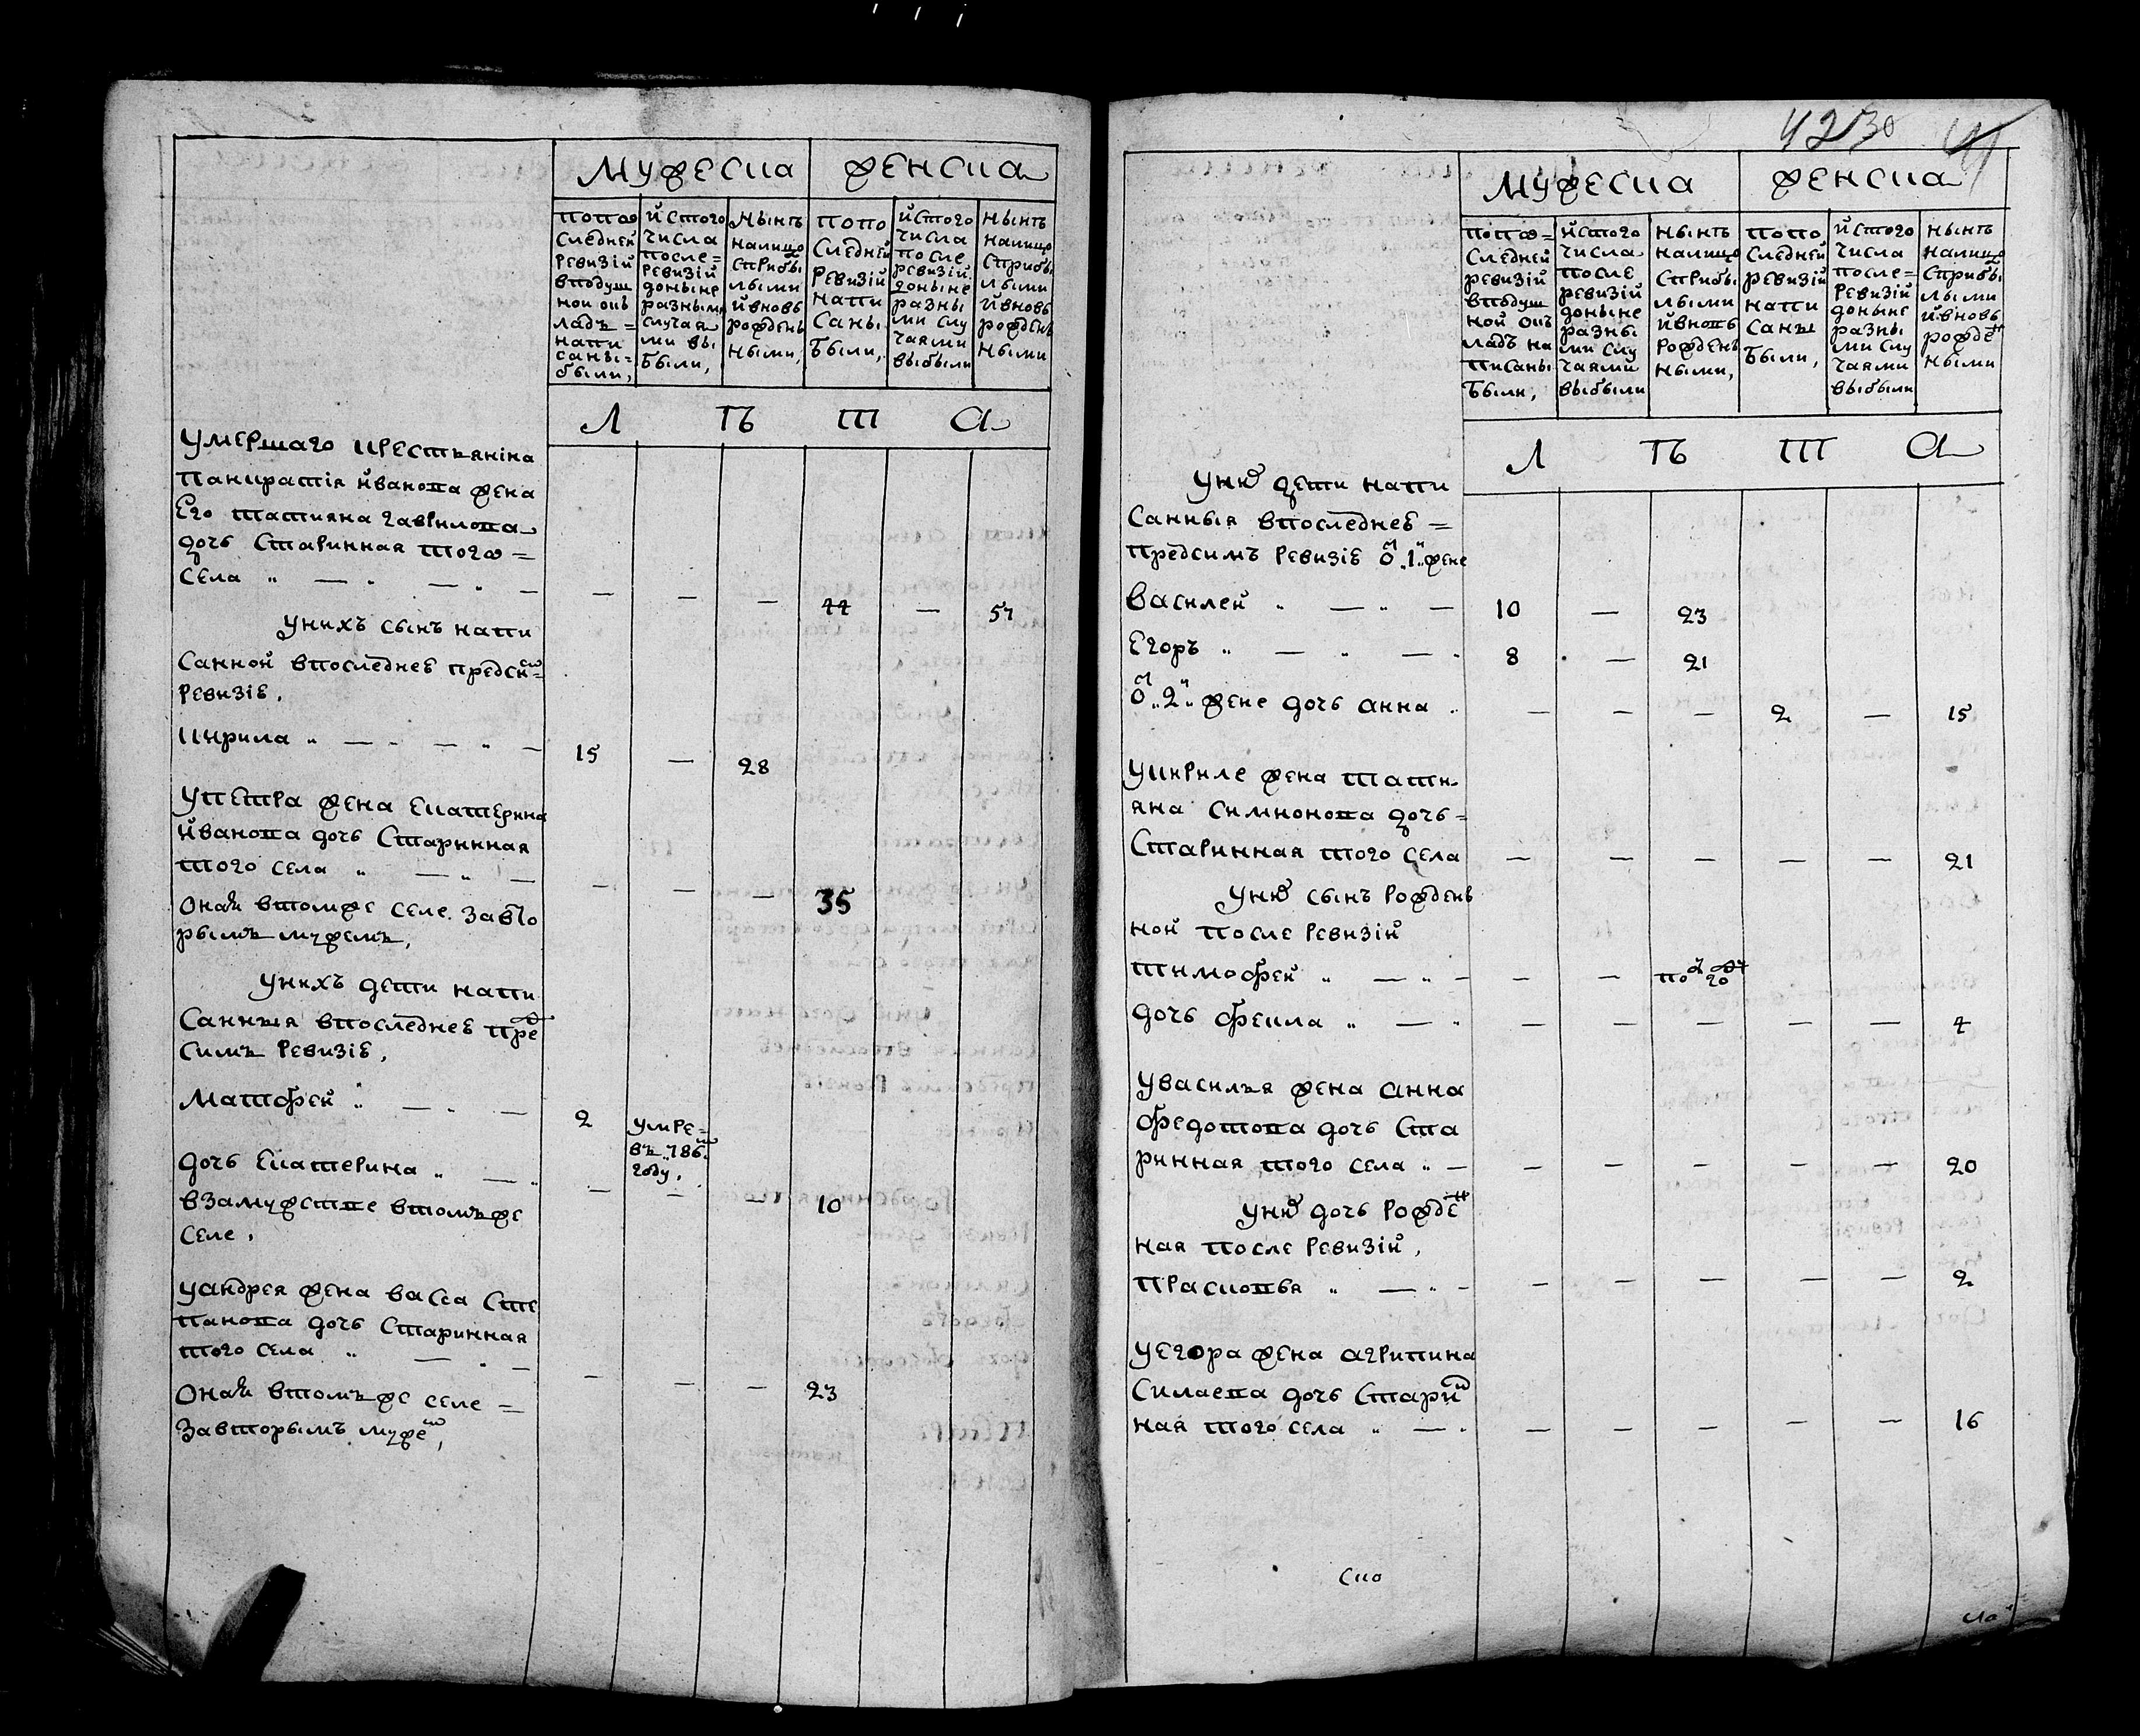 мужеска
женска
попо
следней
ревизій
вподуш
ной окъ
ладъ =
напи
саны =
были,
и стого
числа
после =
ревизій
доныне
разными
случая
ми вы
были,
нынѣ
налицо
сприбы
лыми
й вновь
рожденъ
ными,
попо
следней
ревизій
напи
саны
были,
и стого
числа
после
ревизій
доныне
разны
ми слу
чаями
выбыли
нынѣ
налицо
сприбы
лыми
й вновь
рожденъ
ными
Л Ѣ Т А
Умершаго крестьяніна
Панкратія йванова жена
Его татияна гаврилова
дочь Старинная того =
села — — — — — 44 — 57
Унихъ сынъ напи
Санной впоследнеѣ предсим =
ревизіе,
Кирила — — — 15 — 28
Упетра жена Екатерина
йванова дочь Старинная
того села — — — — — 35
Онай втомже селе завто
рымъ мужемъ,
Унихъ дети напи
Санныя впоследнеѣ пред
симъ Ревизіѣ,
Матфей — — 2 умре =
въ 786м
году,
дочь Екатерина — — — — 10
Взамужстве втомъже
селе,
Уандрея жена васса Сте
панова дочь Старинная
того села — — — — — 23
Онай втомъже селе =
Завторымъ мужем,
42 30
мужеска
женска
попо =
следней
ревизій
вподуш
ной окъ
ладъ на
писаны
были,
и стого
числа
после
ревизій
доныне
разны
ми слу
чаями
выбыли
нынѣ
налицо
сприбы
лыми
й вновь
рожденъ
ными,
попо
следней
ревизій
напи
саны
были,
и стого
числа
после =
ревизій
доныне
разны
ми слу
чаями
выбыли
нынѣ
налицо
сприбы
лыми
й вновь
рожден
ными
Л Ѣ Т А
Уних дети напи
Санныя впоследнеѣ =
предсимъ ревизіѣ от 1й жене
Василей — — 10 — 23
Егоръ — — 8 — 21
от 2й жене дочь анна — — — 2 — 15
Укириле жена тати
яна симионова дочь =
Старинная того села — — — — — 21
Уних сынъ рожденъ
ной после ревизій
тимофей — — — — пол год
дочь фекла — — — — — — 4
Увасилья жена анна
федотова дочь Ста
ринная того села — — — — — — 20
Уних дочь рожден
ная после ревизій,
прасковья — — — — — — 2
Уегора жена агрипина
Силаева дочь Старин
ная того села — — — — — — 16
Ско